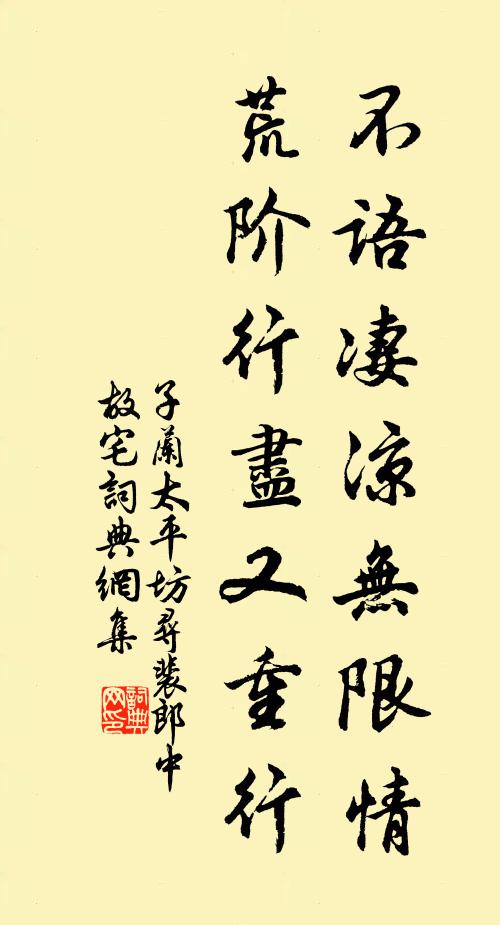 不语凄凉無限情
荒阶行盡又重行
子蘭太平坊尋裴郎中
故宅詞典網集
詞典
网印